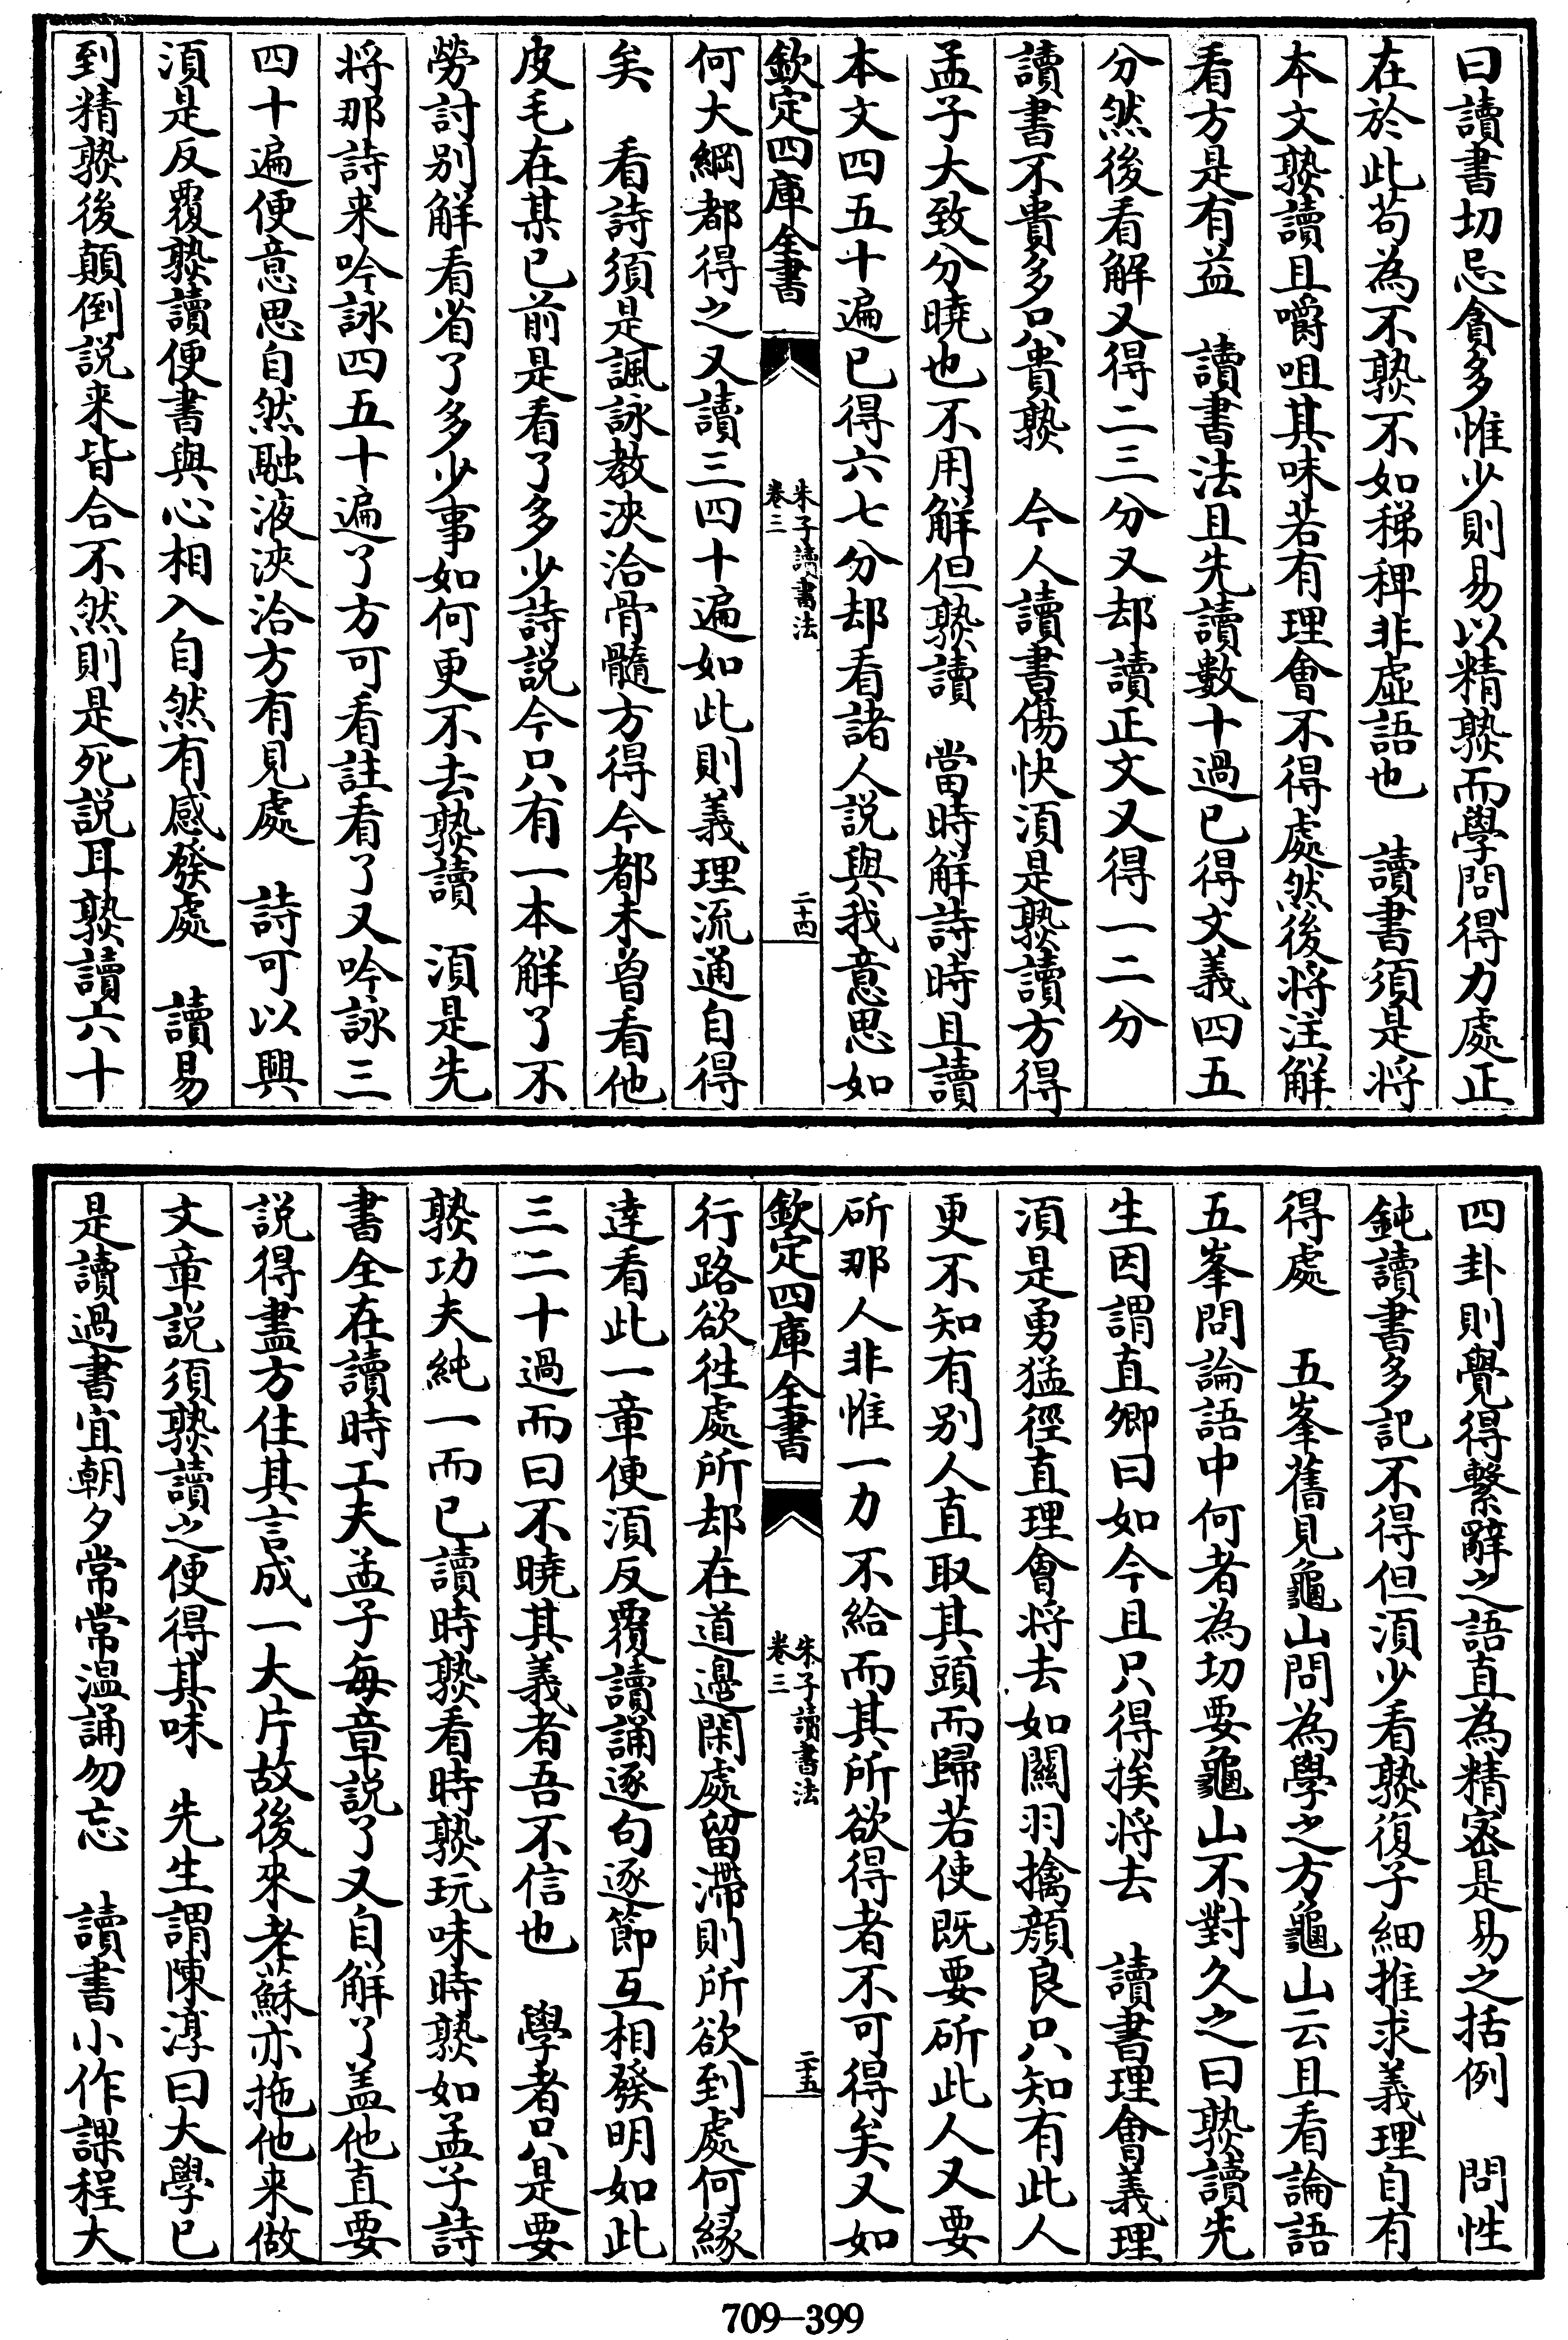 曰讀書切忌貪多惟少則易以精熟而學問得力處正
在於此茍為不熟不如稊稗非虛語也　讀書須是將
本文熟讀且嚼咀其味若有理會不得處然後將注解
看方是有益　讀書法且先讀數十過已得文義四五
分然後看解又得二三分又却讀正文又得一二分
讀書不貴多只貴熟　今人讀書傷快須是熟讀方得
孟子大致分曉也不用解但熟讀　當時解詩時且讀
本文四五十遍已得六七分却看諸人說與我意思如
欽定四庫全書
朱子讀書法
卷三
二十四
何大綱都得之又讀三四十遍如此則義理流通自得
矣　看詩須是諷詠教浹洽骨髓方得今都未曾看他
皮毛在某已前是看了多少詩說今只有一本解了不
勞討别解看省了多少事如何更不去熟讀　須是先
將那詩来吟詠四五十遍了方可看註看了又吟詠三
四十遍便意思自然融液浹洽方有見處　詩可以興
須是反覆熟讀便書與心相入自然有感發處　讀易
到精熟後顛倒說来皆合不然則是死說耳熟讀六十
四卦則覺得繫辭之語直為精密是易之括例　問性
鈍讀書多記不得但須少看熟復子細推求義理自有
得處　五峯舊見龜山問為學之方龜山云且看論語
五峯問論語中何者為切要龜山不對久之曰熟讀先
生因謂直卿曰如今且只得挨將去　讀書理會義理
須是勇猛徑直理會將去如關羽擒顔良只知有此人
更不知有别人直取其頭而歸若使既要斫此人又要
斫那人非惟一力不給而其所欲得者不可得矣又如
欽定四庫全書
朱子讀書法
卷三
二十五
行路欲徃處所却在道邊閑處留滯則所欲到處何緣
逹看此一章便須反覆讀誦逐句逐節互相發明如此
三二十過而曰不曉其義者吾不信也　學者只是要
熟功夫純一而已讀時熟看時熟玩味時熟如孟子詩
書全在讀時工夫孟子每章說了又自解了盖他直要
說得盡方住其言成一大片故後來老蘇亦拖他来做
文章說須熟讀之便得其味　先生謂陳淳曰大學已
是讀過書宜朝夕常常温誦勿忘　讀書小作課程大
709—399